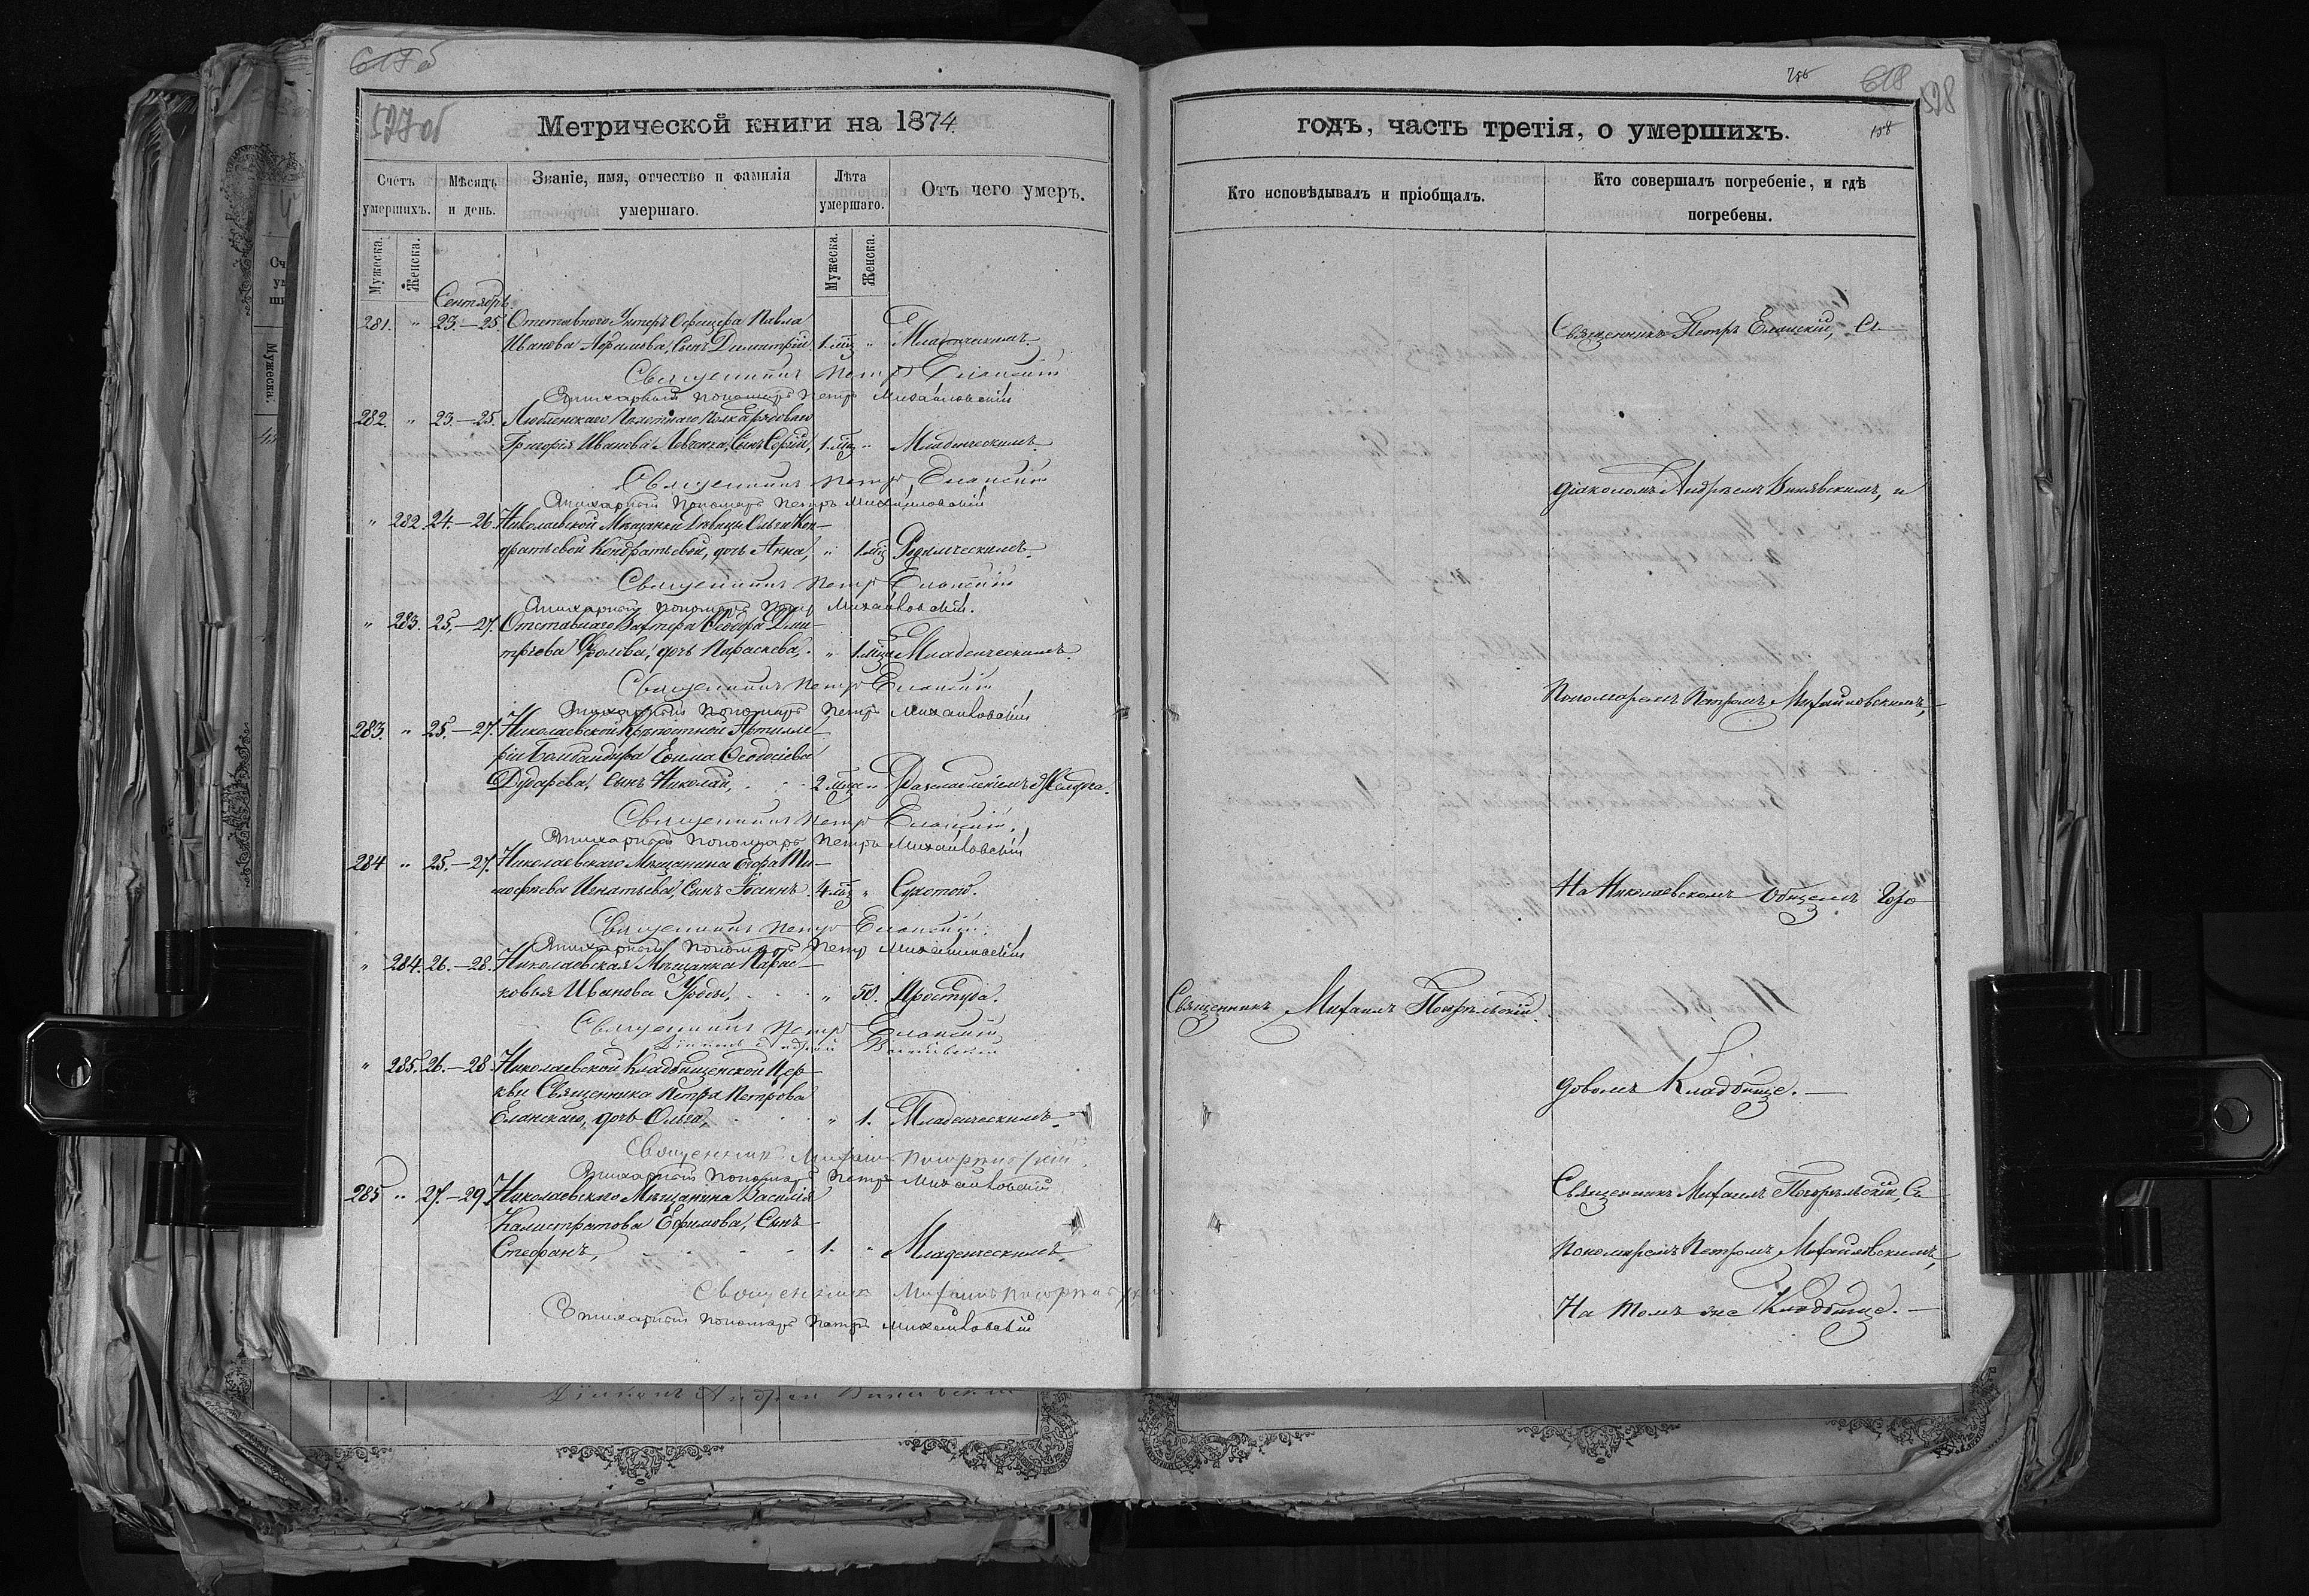 617об
527об
Метрической книги на 1874
Счетъ умершихъ.
Мѣсяцъ и день.
Званіе, имя, отчество и фамилія умершаго.
Лѣта умершаго.
Отъ чего умеръ.
Мужеска.
Женска.
Мужеска.
Женска.
Сентябрь
281. " 23.–25. Отставного Унтеръ Офицера Павла
Иванова Абрамова, Сынъ Димитрій. 1.мц " Младенческимъ.
Священникъ Петръ Еланскій
Стихарный Пономарь Петръ Михайловскій
282. " 23.–25. Люблинскаго Пѣхотнаго Полка рядоваго
Григорія Иванова Левченка, Сынъ Сергій, 1.мц " Младенческимъ.
Священникъ Петръ Еланскій
Стихарный Пономарь Петръ Михайловскій
" 282. 24.–26. Николаевской Мѣщанки Дѣвицы Ольги Кон-
дратьевой Кондратьевой, дочь Анна, " 1.мц Родимческимъ.
Священникъ Петръ Еланскій
Стихарный Пономарь Петръ Михайловскій.
" 283. 25.–27. Отставнаго Вахтера Ѳеодора Дми-
тріева Фролова, дочь Параскева, " 1.мца Младенческимъ.
Священникъ Петръ Еланскій
Стихарный Пономарь Петръ Михайловскій
283. " 25.–27. Николаевской Крѣпостной Артилле-
ріи Бомбандира Евѳима Ѳеодосіева
Дударева, Сынъ Николай, 2 мца " Разслабленіемъ Желудка.
Священникъ Петръ Еланскій.
Стихарный Пономарь Петръ Михайловскій
284 " 25.–27. Николаевскаго Мѣщанина Егора Ти-
мофеева Игнатьева, Сынъ Іоаннъ. 4.мц " Сухотою.
Священникъ Петръ Еланскій.
Стихарный Пономарь Петръ Михайловскій
" 284. 26.–28. Николаевская Мѣщанка Парас-
ковья Иванова " 50. Простуда.
Священникъ Петръ Еланскій
Діаконъ Андрей Винявскій
" 285. 26.–28 Николаевской Кладбищенской Цер-
кви Священника Петра Петрова
Еланскаго, дочь Ольга, " 1. Младенческимъ.
Священникъ Михаилъ
Стихарный Пономарь Петръ Михайловскій
285 " 27.–29. Николаевскаго Мѣщанина Василія
Калистратова Ефимова, Сынъ
Стефанъ, 1. " Младенческимъ.
Священникъ Михаилъ
Стихарный Пономарь Петръ Михайловскій
618
528
158
годъ, часть третія, о умершихъ.
Кто исповѣдывалъ и пріобщалъ.
Кто совершалъ погребеніе, и гдѣ погребены.
Священникъ Петръ Еланскій, Съ
діакономъ Андреемъ Винявскимъ, и
Пономаремъ Петромъ Михайловскимъ,
На Николаевскомъ Общемъ Горо-
Священникъ Михаилъ
довомъ Кладбище.
Священникъ Михаилъ Съ
Пономаремъ Петромъ Михайловскимъ,
На томъ же Кладбище.